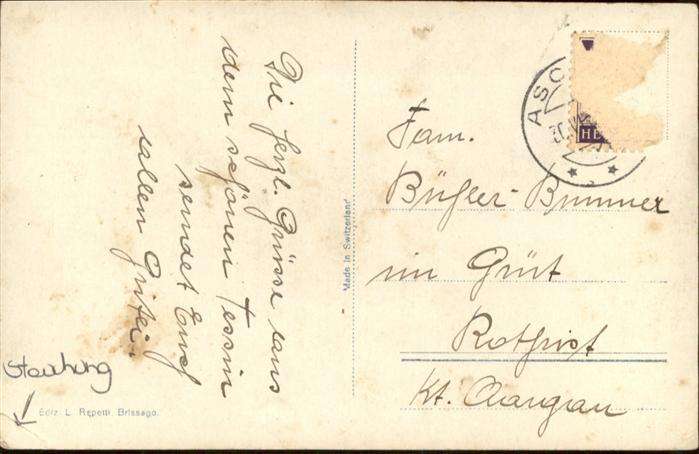 Die herzl. Grüsse aus
dem schönen Tessin
sendet Euch
allen
Made in Switzerland
ASC
HE
Fam.
Bühler-Brunner
im Gürt
Rothrist
Kt. Aargau
Stauchung
Ediz. L. Repetti Brissago.